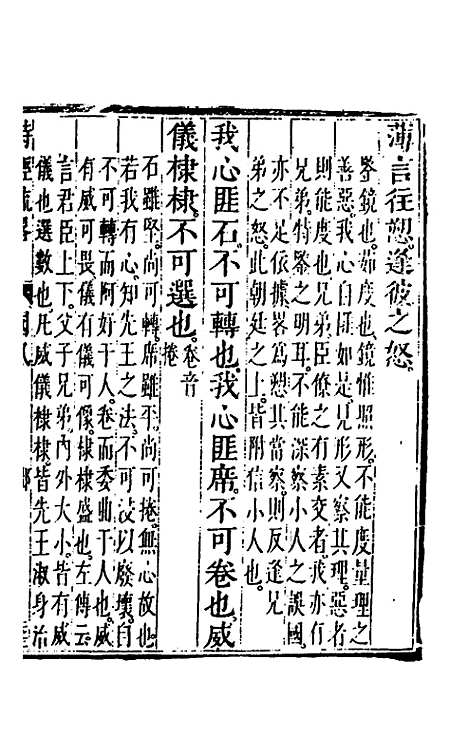 薄言往愬。逢彼之怒。
鑒鏡也。茹度也。鏡惟照形。不能度量理之
善惡。我心自匪如是。見形又察其理。惡者
則能度也。兄弟臣僚之有素交者。我亦有
兄弟。特鑒之明耳。不能深察小人之誤國。
亦不足依據畧為愬其當察。則反逢兄
弟之怒。此朝廷之上。皆附信小人也。
我心匪石。不可轉也。我心匪席。不可卷也。威
儀棣棣。不可選也。卷音捲
石雖堅。尚可轉。席雖平。尚可捲。無心故也
若我有心。知先王之法。不可以廢壞。自
不可轉而阿好于人。卷而委曲于人也。威
有威可畏儀有儀可像。棣棣盛也。左傳云
言君臣上下。父子兄弟。內外大小。皆有威
儀也。選數也。凡威儀棣棣。皆先王淑身治